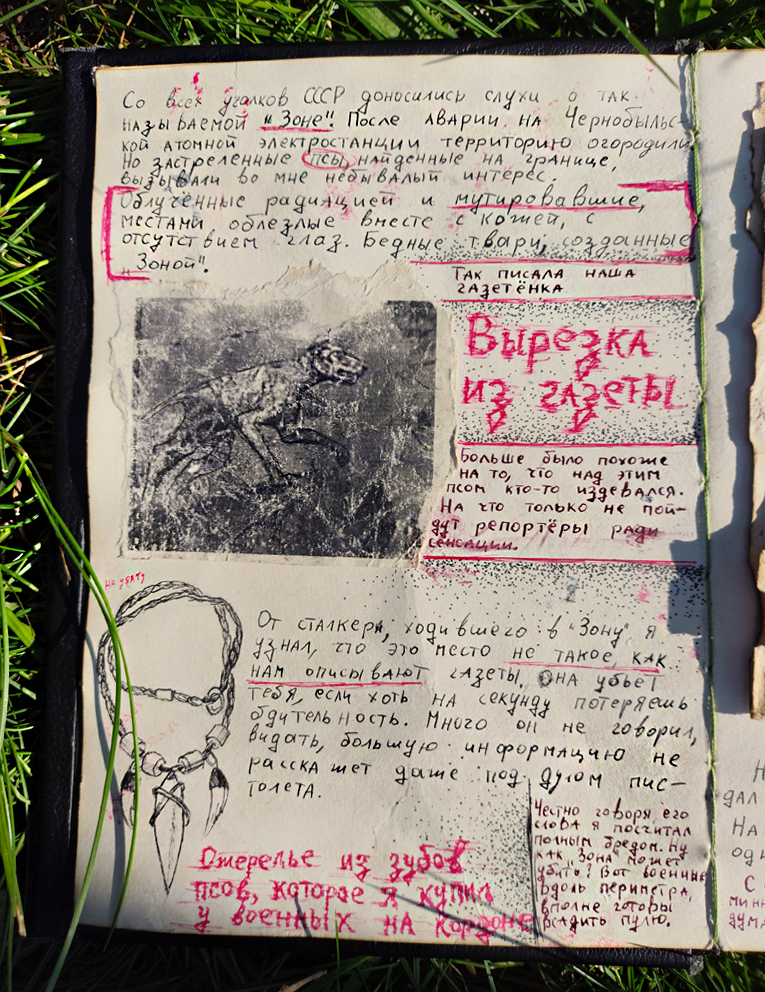 Со всех уголков СССР доносились слухи о так
называемой "Зоне". После аварии на Чернобыльс-
кой атомной электростанции территорию огородили.
Но застреленные псы, найденные на границе,
вызывали во мне небывалый интерес.
Облученные радиацией и мутировавшие,
местами облезлые вместе с кожей, с
отсутствием глаз. Бедные твари, созданные
"Зоной".
Так писала наша
газетёнка
Вырезка
из газеты
Больше было похоже
на то, что над этим
псом кто-то издевался.
На что только не пой-
дут репортёры ради
сенсации.
на удачу
От сталкера, ходившего в "Зону" я
узнал, что это место не такое, как
нам описывают газеты. Она убьет
тебя, если хоть на секунду потеряешь
бдительность. Много он не говорил,
видать, большую информацию не
расскажет даже под дулом пис-
толета.
Честно говоря, его
слова я посчитал
полным бредом. Ну
как "Зона" может
убить? Вот военные
вдоль периметра,
вполне готовы
всадить пулю.
Ожерелье из зубов
псов, которое я купил
у военных на Кордоне
Н
дал
На
одн
С
мин
дума